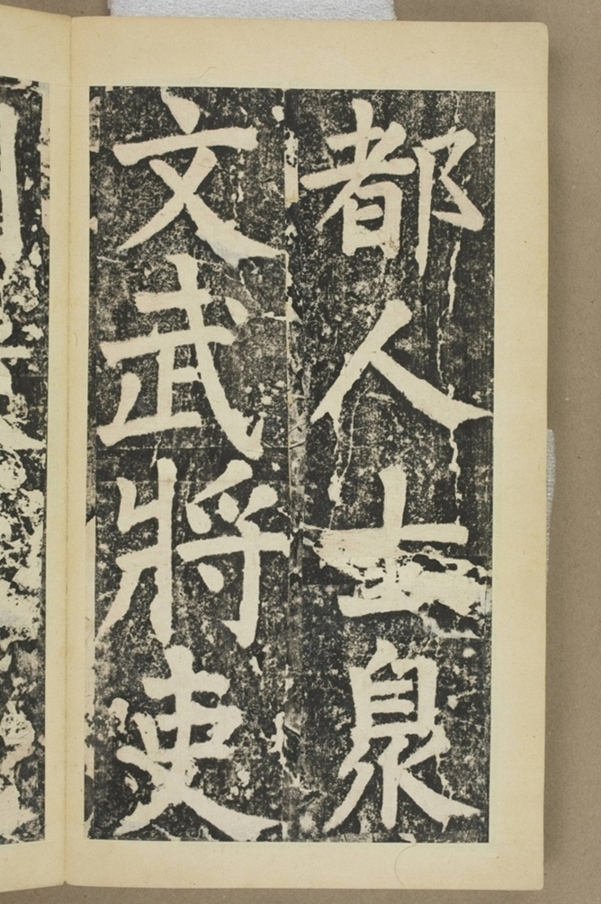 都人士臮
文武將吏